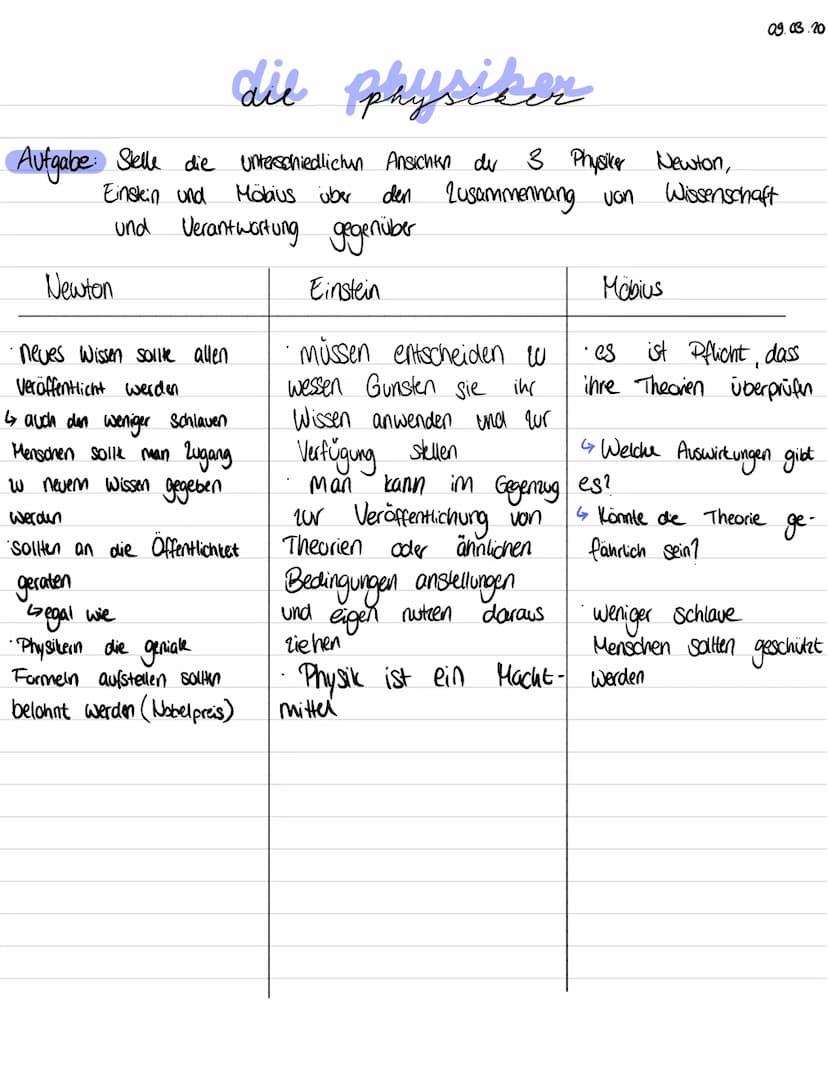 09.03.20
die physiker
Aufgabe: Stelle die unterschiedlichen Ansichten der 3 Physiker Newton,
Einstein und Möbius über den Zusammenhang von Wissenschaft
und Verantwortung gegenüber
Newton
neues Wissen sollte allen
veröffentlicht werden
↳ auch den weniger schlauen
Menschen sollte man Zugang
zu neuem Wissen gegeben
werden
sollten an die Öffentlichkeit
geraten
↳ egal wie
Physikern die geniale
Formeln aufstellen sollten
belohnt werden (Nobelpreis)
Einstein
müssen entscheiden zu
wessen Gunsten sie ihr
Wissen anwenden und zur
Verfügung stellen
Man kann im Gegenzug
zur Veröffentlichung von
Theorien oder ähnlichen
Bedingungen anstellungen
und eigen nutzen daraus
ziehen
Physik ist ein Macht-
mittel
Möbius
es ist Pflicht, dass
ihre Theorien überprüfen
↳ Welche Auswirkungen gibt
es?
↳ Könnte die Theorie ge-
fährlich sein?
weniger schlaue
Menschen sollten geschützt
werden